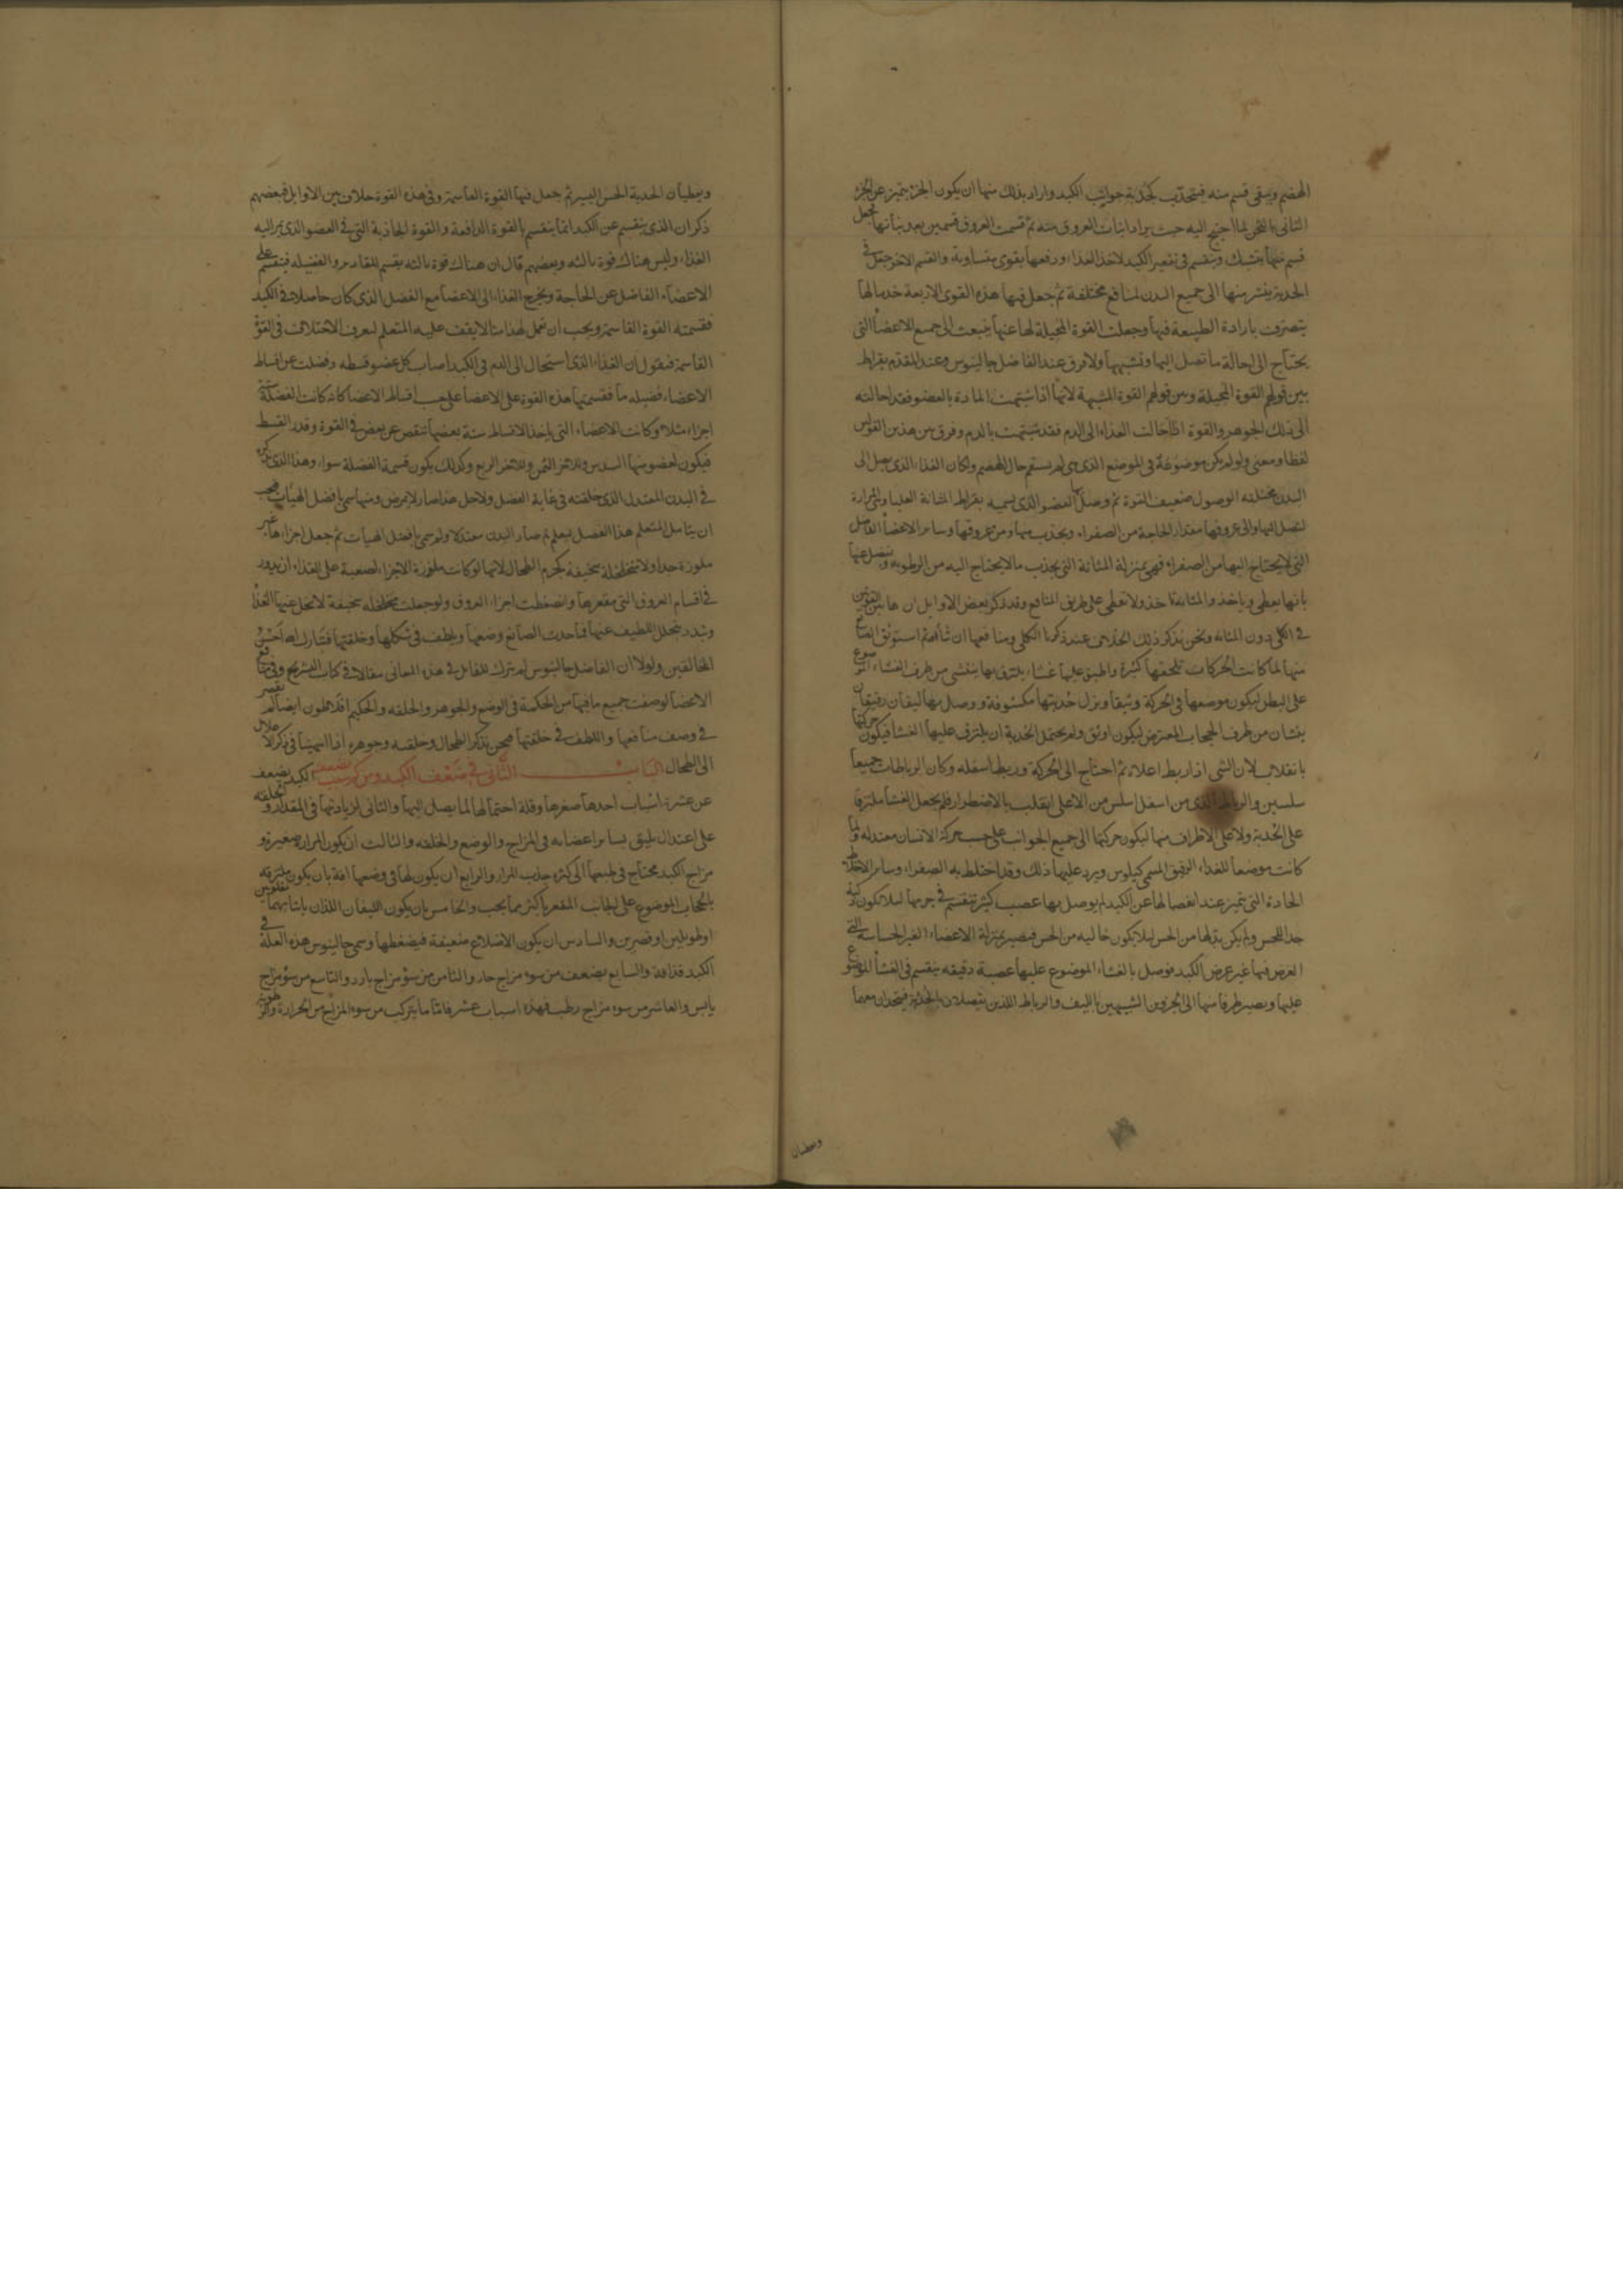 الهضم ويبقى قسم منه فتتحدب كحدبة جوانب الكبد واراد بذلك منها ان يكون الجزء يتميز عن الجزء
الثانى بالثخن لما احتيج اليه حيث يراد انبات العروق منه ثم قسمت العروق قسمين بعد نباتها فجعل
قسم منها يتشبك وينقسم فى تقعير الكبد لاخذ الغذاء ورفعها بقوى متساوية والقسم الاخر جعل فى
الحدبة ينتشر منها الى جميع البدن لمنافع مختلفة ثم جعل فيها هذه القوى الاربعة خدما لها
يتصرف بارادة الطبيعة فيها وجعلت القوة المحيلة لها عنها ينبعث الى جميع الاعضاء التى
يحتاج الى احالة ما تصل اليها وتشبهها ولا فرق عند الفاضل جالينوس وعند المقدم بقراط
بين قولهم القوة المحيلة وبين قولهم القوة المشبهة لانها اذا شبهت المادة بالعضو فقد احالته
الى ذلك الجوهر والقوة اذا احالت الغذاء الى الدم فقد شبهت بالدم وفرق بين هذين القولين
لفظا ومعنى ولو لم يكن موضوعة فى الموضع الذى هى لم يستقم حال الهضم ولكان الغذاء الذى يصل الى
البدن مختلفة الوصول ضعيف القوة ثم وصل بها العضو الذى يسميه بقراط المثانة العليا وهى المرارة
لتصل اليها والى عروقها مقدار الحاجة من الصفراء ويجذب منها ومن عروقها وسائر الاعضاء الفاضل
التى لا يحتاج اليها من الصفراء فهى بمنزلة المثانة التى يجذب ما لا يحتاج اليه من الرطوبة وينفصل عنها
بانها يعطى وياخذ والمثانة تاخذ ولا تعطى على طريق المنافع وقد ذكر بعض الاوايل ان هاتين القوتين
فى الكلى دون المثانة ونحن نذكر ذلك الخلاف عند ذكرنا الكلى ومنافعها ان شاء الله ثم استوثق الصانع
منها لما كانت الحركات تلحقها كثيرة واطبق عليها غشاء يلتزق بها ينتشى من طرف الغشاء الموضوع
على البطن ليكون موضعها فى الحركة وثيقا ونزل حدبتها مكشوفة ووصل بها ليفان دقيقان
ينشان من طرف الحجاب المعترض ليكون اوثق ولم يحتمل الحدبة ان يلتزق عليها الغشاء فيكون حركتها
بانقلاب لان الشى اذا ربط اعلاه ثم احتاج الى الحركة وربط اسفله وكان الرباطات جميعا
سلسين والرباط الذى من اسفل اسلس من الاعلى انقلب بالاضطرار فلم يجعل الغشاء ملتزقا
على الحدبة ولا على الاطراف منها ليكون حركتها الى جميع الجوانب على حسب حركة الانسان معتدلة ولما
كانت موضعا للغذاء الرقيق المسمى كيلوس ويرد عليها ذلك وقد اختلط به الصفراء وسائر الاخلاط
الحادة التى يتميز عند انفصالها عن الكبد لم يوصل بها عصب كثير تنقسم فى جرمها ليلا تكون ذكية
جدا للحس ولم يكن بد لها من الحس ليلا يكون خالية من الحس فيصير بمنزلة الاعضاء الغير الحساسة التى
الغرض فيها غير غرض الكبد فوصل بالغشاء الموضوع عليها عصبة دقيقة ينقسم فى الغشاء الموضوع
عليها ويصير طرفا منها الى الجزوين الشبيهين بالليف والرباط اللذين يتصلان بالحدبة فيتحدان معها
ويعطيان
ويعطيان الحدبة الحس اليسير ثم جعل فيها القوة القاسمة وفى هذه القوة خلاف بين الاوايل فبعضهم
ذكر ان الذى ينقسم عن الكبد انما ينقسم بالقوة الدافعة والقوة الجاذبة التى فى العضو الذى يمر اليه
الغذاء وليس هناك قوة ثالثة وبعضهم قال ان هناك قوة ثالثة يقسم المقادير والفضيلة فينقسم على
الاعضاء الفاضل عن الحاجة ويخرج الغذاء الى الاعضاء مع الفضل الذى كان حاصلا فى الكبد
فقسمته القوة القاسمة ويجب ان نعمل لهذا مثالا يقف عليه المتعلم ليعرف الاختلاف فى القوة
القاسمة فنقول ان الغذاء الذى استحال الى الدم فى الكبد اصاب كل عضو قسطه وفضلت عن اقساط
الاعضاء فضيلة ما فقسمتها هذه القوة على الاعضاء على حسب اقساط الاعضاء كانه كانت الفضلة ستة
اجزاء مثلا وكانت الاعضاء التى ياخذ الاقساط ستة بعضها تنقص عن بعض فى القوة وقدر القسط
فيكون لعضو منها السدس وللاخر الثمن وللاخر الربع وكذلك يكون قسمة الفضلة سواء وهذا الذى ذكره
فى البدن المعتدل الذى خلقته فى غاية الفضل ولاجل هذا صار لا يمرض ومنها سمى بافضل الهيات فيجب
ان يتامل المتعلم هذا الفصل ليعلم لم صار البدن معتدلا ولم سمى بافضل الهيات ثم جعل اجزاءها غير
ملززة جدا ولا متخلخلة سخيفة كجرم الطحال لانها لو كانت ملززة الاجزاء لصعبة على الغذاء ان يدور
فى اقسام العروق التى مقعرها وانضغطت اجزاء العروق ولو جعلت متخلخلة سخيفة لانحل عنها الغذاء
وتبدد بتحلل اللطيف عنها فاحدث الصانع وضعها ولطف فى شكلها وخلقتها فتبارك الله احسن
الخالقين ولولا ان الفاضل جالينوس لم يترك للقائل فى هذه المعانى مقالا فى كتاب التشريح وفى منافع
الاعضاء لوصفت جميع ما فيها من الحكمة فى الوضع والجوهر والخلقه والحكيم افلاطون ايضا لم يقصر
فى وصف منافعها واللطف فى خلقتها فنحن نذكر الطحال وخلقه وجوهره اذا انتهينا فى ذكر الاعلال
الى الطحال الباب الثانى فى ضعف الكبد ومن كم سبب تضعف الكبد يضعف
عن عشرة اسباب احدها صغرها وقلة احتمالها لما يصل اليها والثانى لزيادتها فى المقدار والخلقه
على اعتدال يليق بسائر اعضائه فى المزاج والوضع والخلقه والثالث ان يكون المرارة صغيرة و
مزاج الكبد محتاج فى طبعها الى كثرة جذب المرار والرابع ان يكون لها فى وضعها افة بان يكون ملتزقة
بالحجاب الموضوع على الجانب المقعر باكثر مما يجب والخامس بان يكون الليفان اللذان ياتيانها متفاوتين
او طويلين او قصيرين والسادس ان يكون الاضلاع ضعيفة فيضغطها وسمى جالينوس هذه العلة فى
الكبد قذافة والسابع يضعف من سوء مزاج حار والثامن من سوء مزاج بارد والتاسع من سوء مزاج
يابس والعاشر من سوء مزاج رطب فهذه اسباب عشر فاما ما يتركب من سوء المزاج من الحرارة والرطوبة